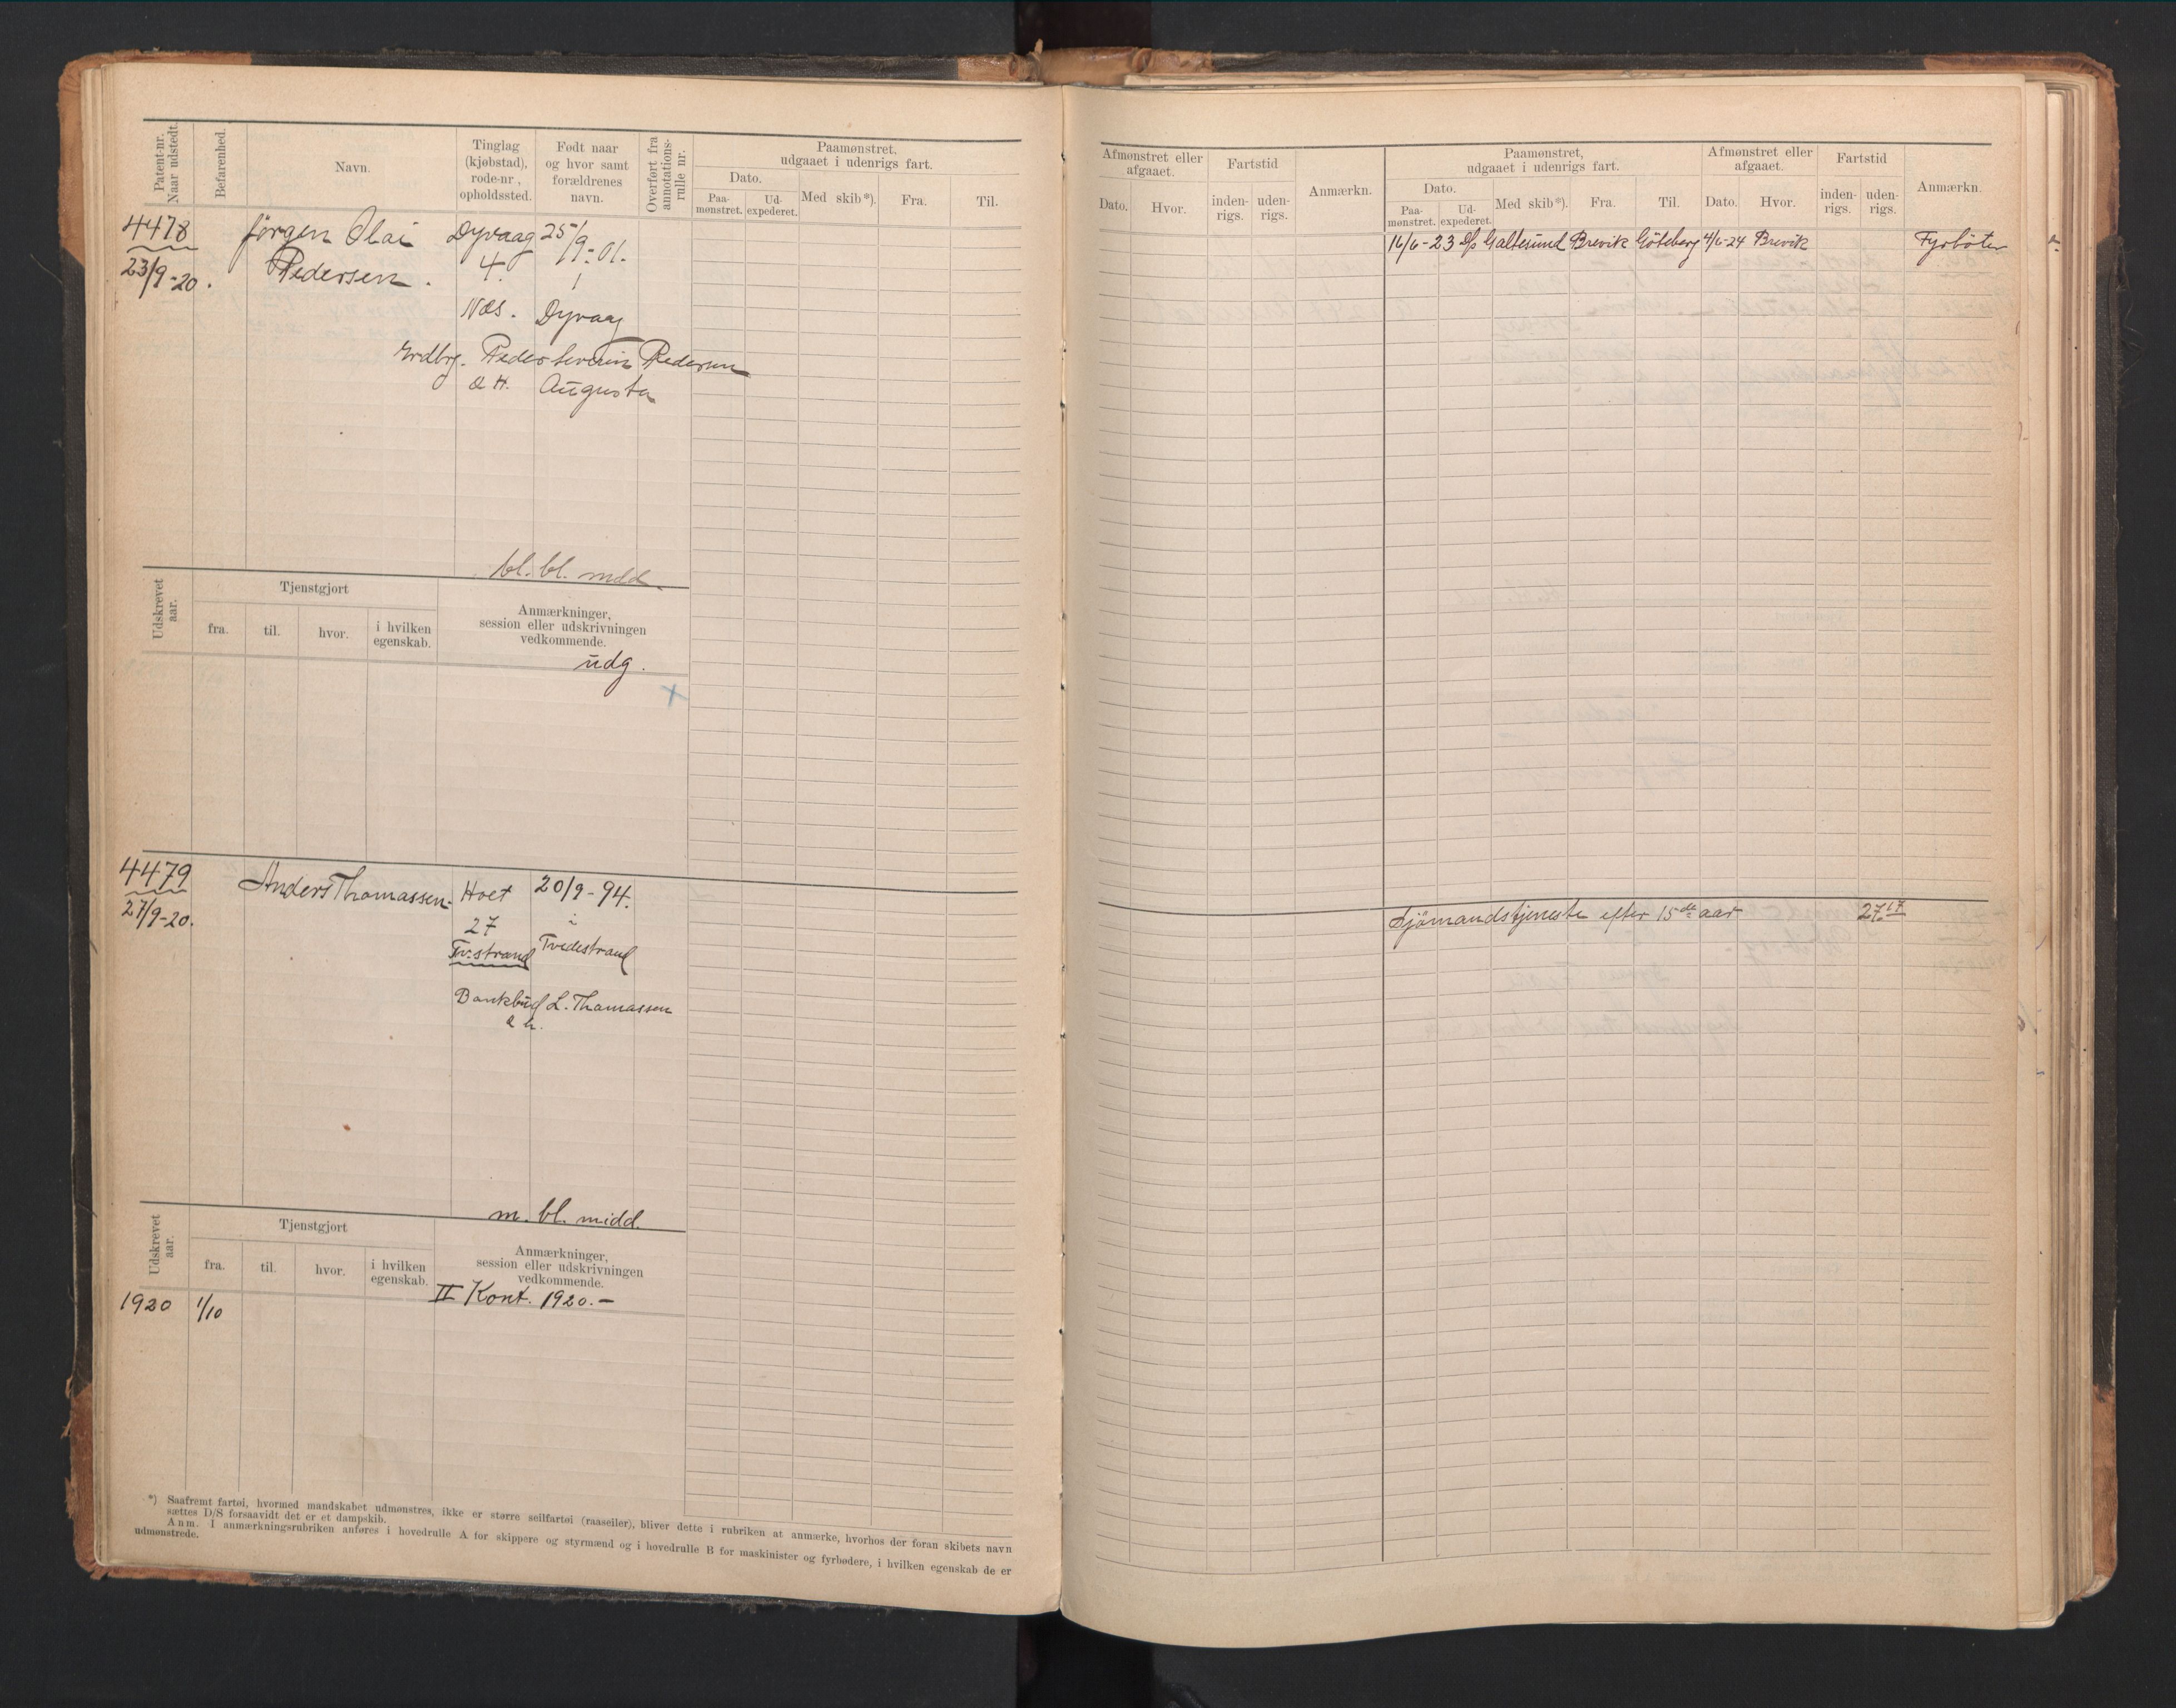 Patent-nr. Naar udstedt.
Befarenhed.
Navn.
Tinglag (kjøbstad), rode-nr., opholdssted.
Født naar og hvor samt forældrenes navn.
Overført fra annotations-rulle nr.
Paamønstret, udgaaet i udenrigs fart.
Dato.
Paa-mønstret.
Ud-expederet.
Med skib*).
Fra.
Til.
4478
23/9-20.
Jörgen Olai
Pedersen.
Dyvaag
4.
Næs.
25/9-01.
i
Dyvaag
Peder Severin Pedersen
& H. Augusta
bl. bl. mdd.
Udskrevet aar.
Tjenstgjort
fra.
til.
hvor.
i hvilken egenskab.
Anmærkninger, session eller udskrivningen vedkommende.
udg.
4479
27/9-20.
Anders Thomassen.
Hoet
27
Tv:strand
20/9-94.
i
Tvedestrand
Bankbud L. Thomassen
& h.
m. bl. midd.
Udskrevet aar.
Tjenstgjort
fra.
til.
hvor.
i hvilken egenskab.
Anmærkninger, session eller udskrivningen vedkommende.
1920 1/10
II Kont. 1920.-
*) Saafremt fartøi, hvormed mandskabet udmønstres, ikke er større seilfartøi (raaseiler), bliver dette i rubriken at anmærke, hvorhos der foran skibets navn
sættes D/S forsaavidt det er et dampskib.
Anm. I anmærkningsrubriken anføres i hovedrulle A for skippere og styrmænd og i hovedrulle B for maskinister og fyrbødere, i hvilken egenskab de er
udmønstrede.
Afmønstret eller afgaaet.
Dato.
Hvor.
Fartstid
inden-rigs.
uden-rigs.
Anmærkn.
Paamønstret, udgaaet i udenrigs fart.
Dato.
Paa-mønstret.
Ud-expederet.
Med skib*).
Fra.
Til.
Afmønstret eller afgaaet.
Dato.
Hvor.
Fartstid
inden-rigs.
uden-rigs.
Anmærkn.
16/6-23 D/s Galtesund Brevik Göteborg 4/6-24 Brevik Fyrböter
Sjömandstjeneste efter 15de aar 27.17